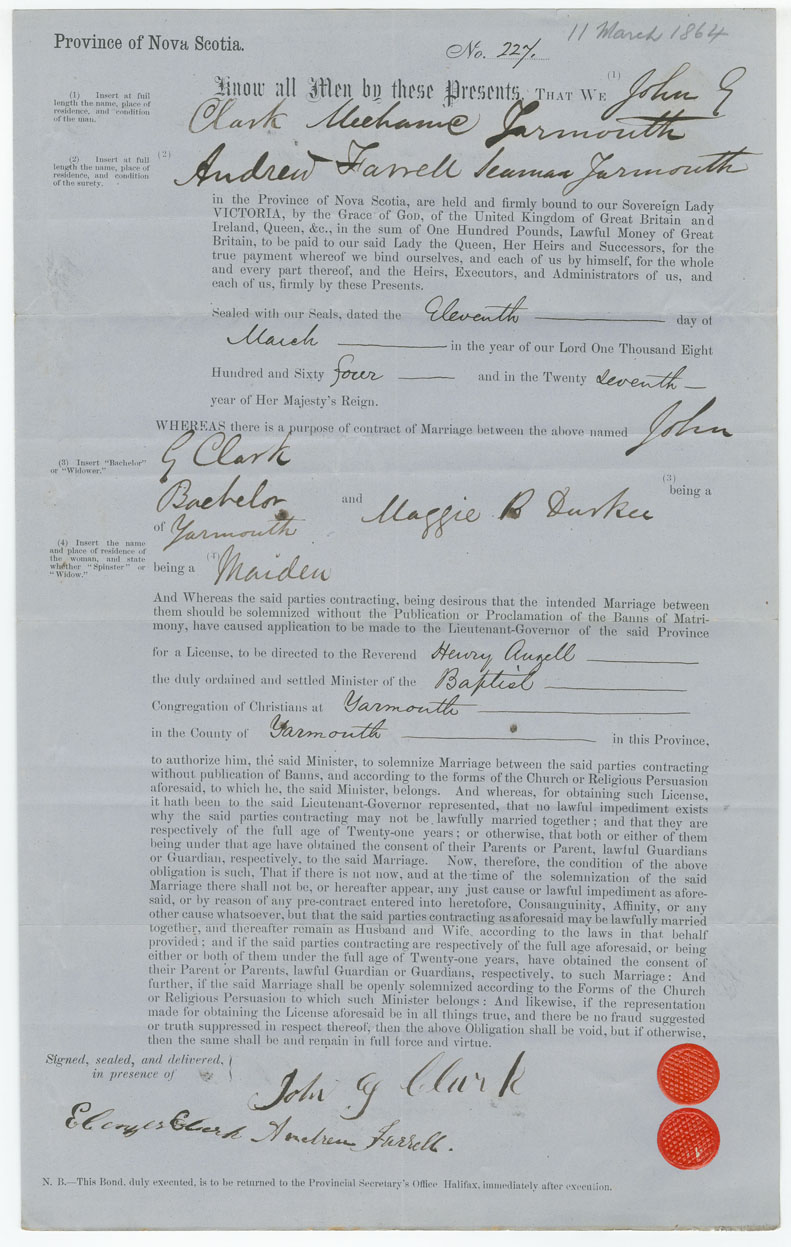 11 March 1864
Province of Nova Scotia.
No. 227.
(1) Insert at full
length the name, place of
residence, and condition
of the man.
Know all Men by these Presents, THAT WE (1) John G
Clark Mechanic Yarmouth
(2) Insert at full
length the name, place of
residence, and condition
of the surety.
(2) Andrew Farrell Seaman Yarmouth
in the Province of Nova Scotia, are held and firmly bound to our Sovereign Lady
VICTORIA, by the Grace of GOD, of the United Kingdom of Great Britain and
Ireland, Queen, &c., in the sum of One Hundred Pounds, Lawful Money of Great
Britain, to be paid to our said Lady the Queen, Her Heirs and Successors, for the
true payment whereof we bind ourselves, and each of us by himself, for the whole
and every part thereof, and the Heirs, Executors, and Administrators of us, and
each of us, firmly by these Presents.
Sealed with our Seals, dated the Eleventh day of
March in the year of our Lord One Thousand Eight
Hundred and Sixty four and in the Twenty seventh
year of Her Majesty's Reign.
WHEREAS there is a purpose of contract of Marriage between the above named John
(3) Insert "Bachelor"
or "Widower."
G Clark
(3)
being a
Bachelor and Maggie B Durkee
of Yarmouth
(4) Insert the name
and place of residence of
the woman, and state
whether "Spinster" or
"Widow."
being a (4) Maiden
And Whereas the said parties contracting, being desirous that the intended Marriage between
them should be solemnized without the Publication or Proclamation of the Banns of Matri-
mony, have caused application to be made to the Lieutenant-Governor of the said Province
for a License, to be directed to the Reverend Henry Angell
the duly ordained and settled Minister of the Baptist
Congregation of Christians at Yarmouth
in the County of Yarmouth in this Province,
to authorize him, the said Minister, to solemnize Marriage between the said parties contracting
without publication of Banns, and according to the forms of the Church or Religious Persuasion
aforesaid, to which he, the said Minister, belongs. And whereas, for obtaining such License,
it hath been to the said Lieutenant-Governor represented, that no lawful impediment exists
why the said parties contracting may not be lawfully married together; and that they are
respectively of the full age of Twenty-one years; or otherwise, that both or either of them
being under that age have obtained the consent of their Parents or Parent, lawful Guardians
or Guardian, respectively, to the said Marriage. Now, therefore, the condition of the above
obligation is such, That if there is not now, and at the time of the solemnization of the said
Marriage there shall not be, or hereafter appear, any just cause or lawful impediment as afore-
said, or by reason of any pre-contract entered into heretofore, Consanguinity, Affinity, or any
other cause whatsoever, but that the said parties contracting as aforesaid may be lawfully married
together, and thereafter remain as Husband and Wife, according to the laws in that behalf
provided; and if the said parties contracting are respectively of the full age aforesaid, or being
either or both of them under the full age of Twenty-one years, have obtained the consent of
their Parent or Parents, lawful Guardian or Guardians, respectively, to such Marriage: And
further, if the said Marriage shall be openly solemnized according to the Forms of the Church
or Religious Persuasion to which such Minister belongs: And likewise, if the representation
made for obtaining the License aforesaid be in all things true, and there be no fraud suggested
or truth suppressed in respect thereof, then the above Obligation shall be void, but if otherwise,
then the same shall be and remain in full force and virtue.
Signed, sealed, and delivered,
in presence of
John G Clark
Clark Andrew Farrell.
N. B.—This Bond, duly executed, is to be returned to the Provincial Secretary's Office Halifax, immediately after execution.